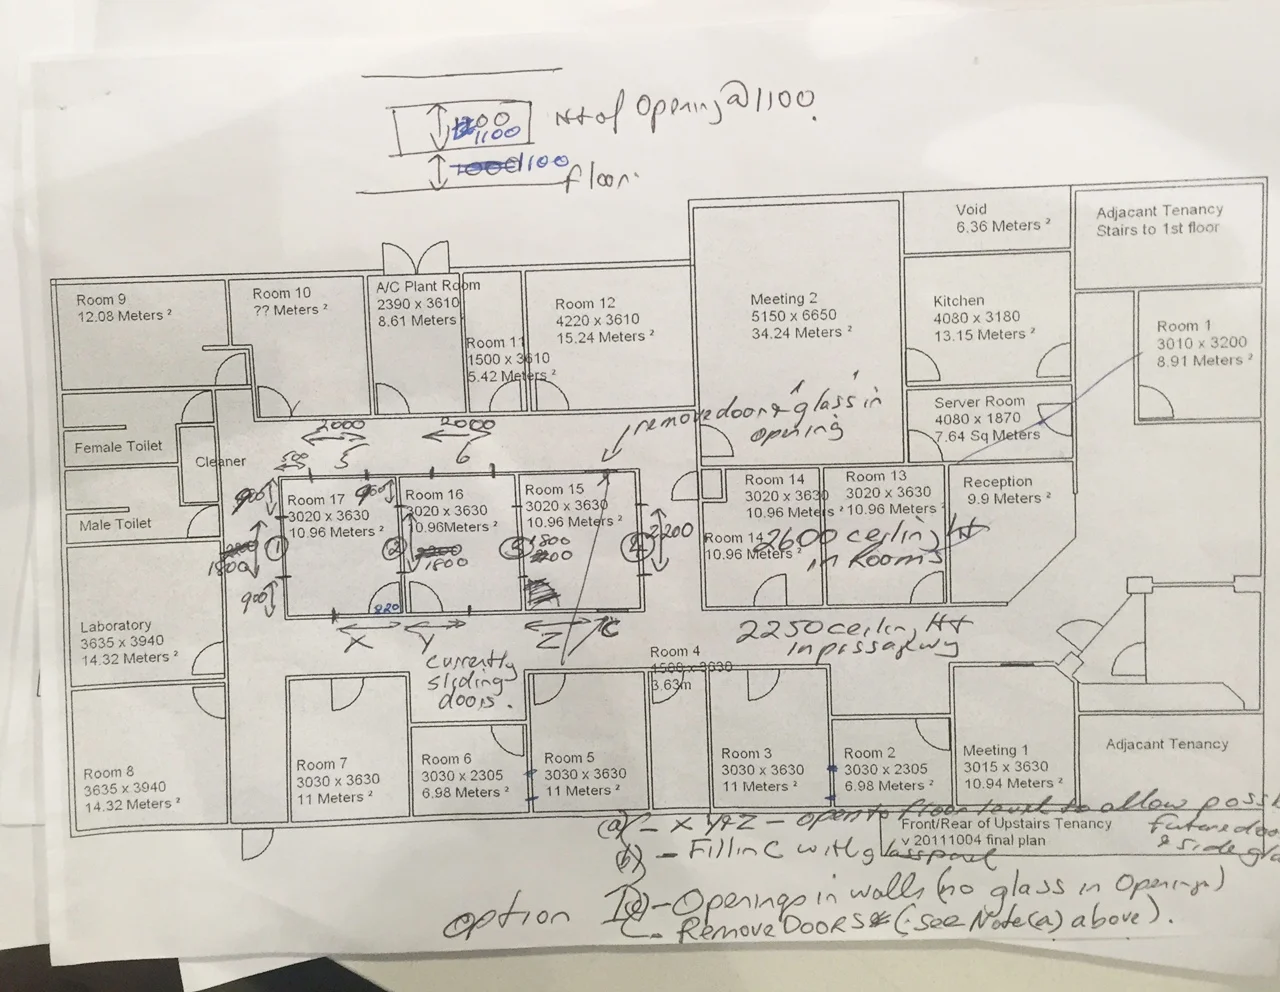 Ht of Opening @ 1100.
1100
1100
floor.
Void
6.36 Meters ²
Adjacant Tenancy
Stairs to 1st floor
Room 9
12.08 Meters ²
Room 10
?? Meters ²
A/C Plant Room
2390 x 3610
8.61 Meters
Room 11
1500 x 3610
5.42 Meters ²
Room 12
4220 x 3610
15.24 Meters ²
Meeting 2
5150 x 6650
34.24 Meters ²
Kitchen
4080 x 3180
13.15 Meters ²
Room 1
3010 x 3200
8.91 Meters ²
Server Room
4080 x 1870
7.64 Sq Meters
remove door & glass in
opening
2000
5
2000
6
500
Female Toilet
Cleaner
Male Toilet
900
900
Room 17
3020 x 3630
10.96 Meters ²
Room 16
3020 x 3630
10.96Meters ²
Room 15
3020 x 3630
10.96 Meters ²
Room 14
3020 x 3630
10.96 Meters ²
Room 13
3020 x 3630
10.96 Meters ²
Reception
9.9 Meters ²
Room 14
10.96 Meters ²
2600 ceiling Ht
in Rooms
1800
1
2
1800
3
1800
4
2200
900
820
X
Y
Z
C
2250 ceiling Ht
in passageway
currently
sliding
doors.
Laboratory
3635 x 3940
14.32 Meters ²
Room 4
1500 x 3630
3.63m
Room 8
3635 x 3940
14.32 Meters ²
Room 7
3030 x 3630
11 Meters ²
Room 6
3030 x 2305
6.98 Meters ²
Room 5
3030 x 3630
11 Meters ²
Room 3
3030 x 3630
11 Meters ²
Room 2
3030 x 2305
6.98 Meters ²
Meeting 1
3015 x 3630
10.94 Meters ²
Adjacant Tenancy
(a) - X Y & Z - open to floor level to allow possi
future doo
& side gla
Front/Rear of Upstairs Tenancy
v 20111004 final plan
(b) - Fill in C with glass panel
option 1 (c) - Openings in walls (no glass in Openings)
- Remove DOORS (see Note (a) above).